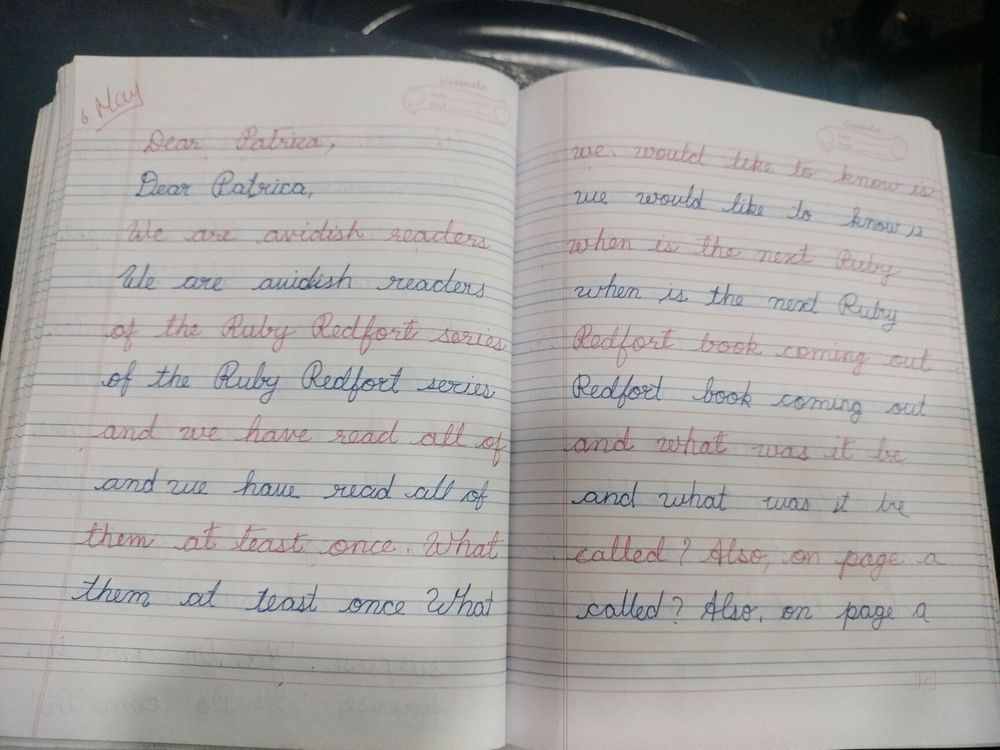 6 May
Dear Patrica,
Dear Patrica,
We are avidish readers
We are avidish readers
of the Ruby Redfort series
of the Ruby Redfort series
and we have read all of
and we have read all of
them at teast once. What
them at teast once What
classmate
we would like to know is
we would like to know is
when is the next Ruby
when is the next Ruby
Redfort book coming out
Redfort book coming out
and what was it be
and what was it be
called? Also, on page a
called? Also, on page a
classmate